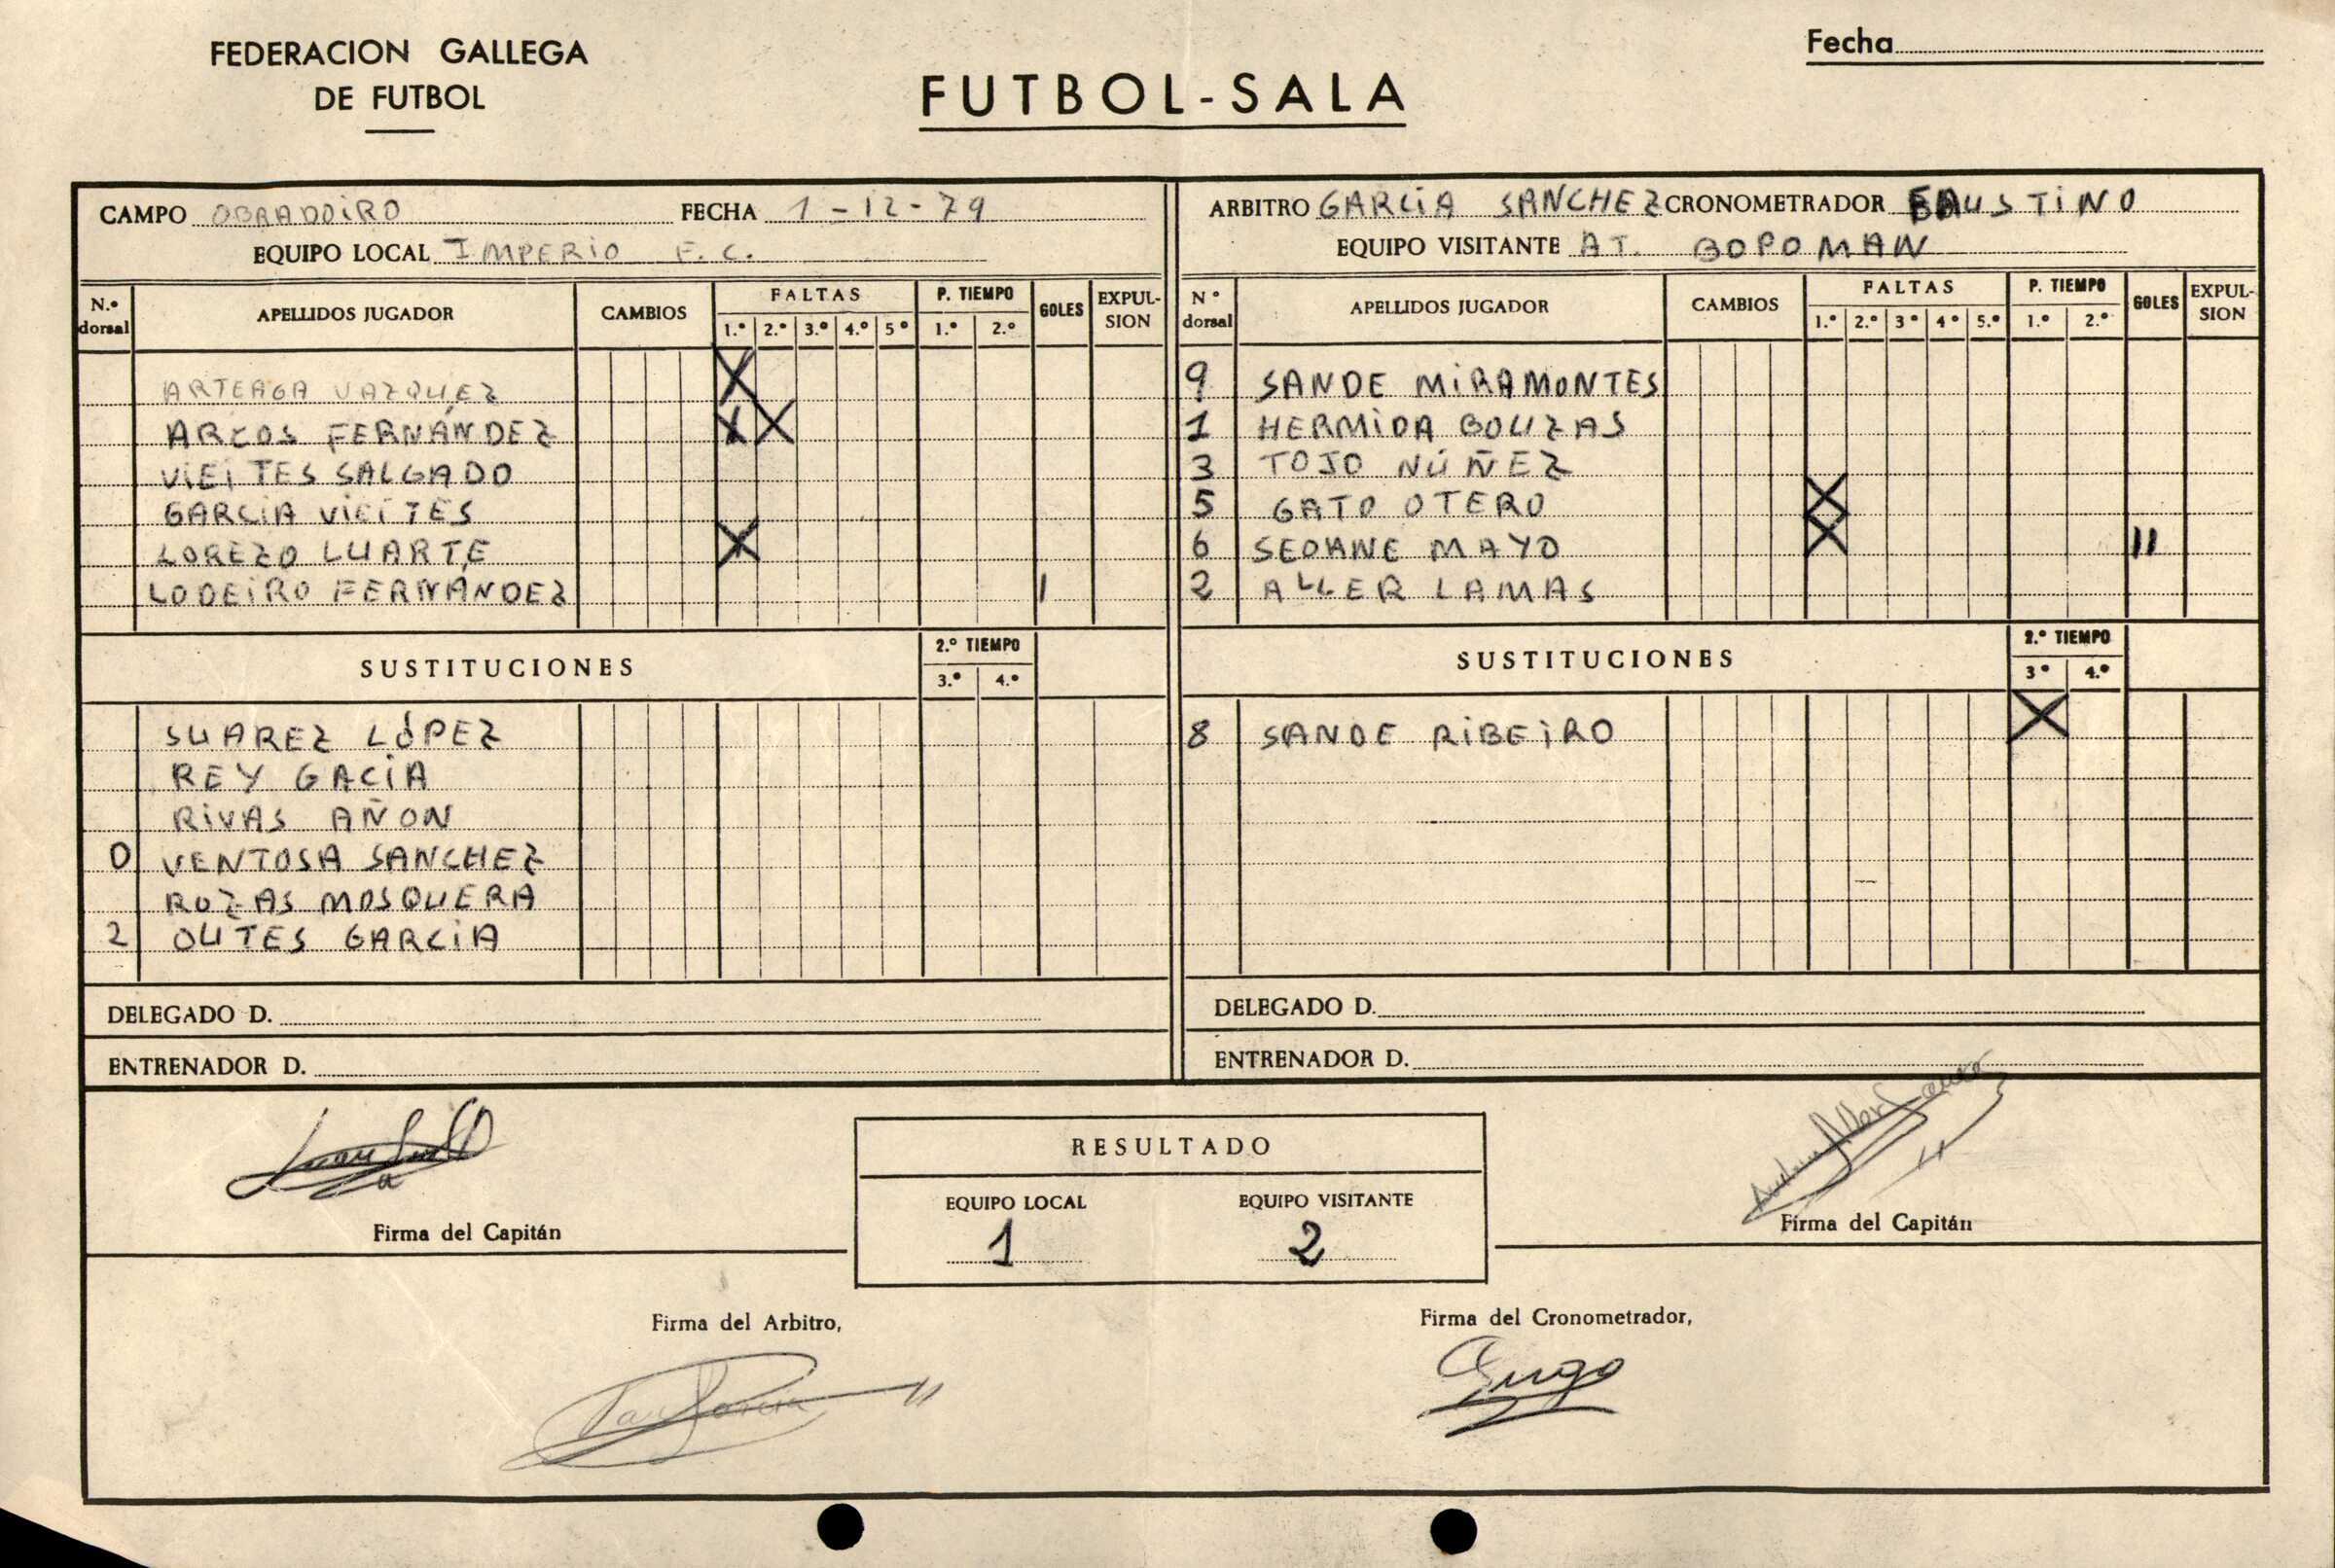 FEDERACION GALLEGA
DE FUTBOL
FUTBOL-SALA
Fecha
CAMPO OBRADOIRO FECHA 1-12-79
EQUIPO LOCAL IMPERIO F.C.
N.º dorsal APELLIDOS JUGADOR CAMBIOS FALTAS 1.º 2.º 3.º 4.º 5º P. TIEMPO 1.º 2.º GOLES EXPULSION
ARTEAGA VAZQUEZ X
ARCOS FERNÁNDEZ X X
VIEITES SALGADO
GARCIA VIEITES
LOREZO LUARTE X
LODEIRO FERNÁNDEZ I
SUSTITUCIONES 2.º TIEMPO 3.º 4.º
SUAREZ LÓPEZ
REY GACIA
RIVAS AÑON
0 VENTOSA SANCHEZ
ROZAS MOSQUERA
2 OUTES GARCIA
DELEGADO D.
ENTRENADOR D.
ARBITRO GARCIA SANCHEZ CRONOMETRADOR FAUSTINO
EQUIPO VISITANTE AT. BOPOMAN
Nº dorsal APELLIDOS JUGADOR CAMBIOS FALTAS 1.º 2.º 3º 4º 5.º P. TIEMPO 1.º 2.º GOLES EXPUL-SION
9 SANDE MIRAMONTES
1 HERMIDA BOUZAS
3 TOJO NÚÑEZ
5 GATO OTERO X
6 SEOANE MAYO X II
2 ALLER LAMAS
SUSTITUCIONES 2.º TIEMPO 3º 4.º
8 SANDE RIBEIRO X
DELEGADO D.
ENTRENADOR D.
Firma del Capitán
RESULTADO
EQUIPO LOCAL EQUIPO VISITANTE
1 2
Firma del Capitán
Firma del Arbitro,
Firma del Cronometrador,